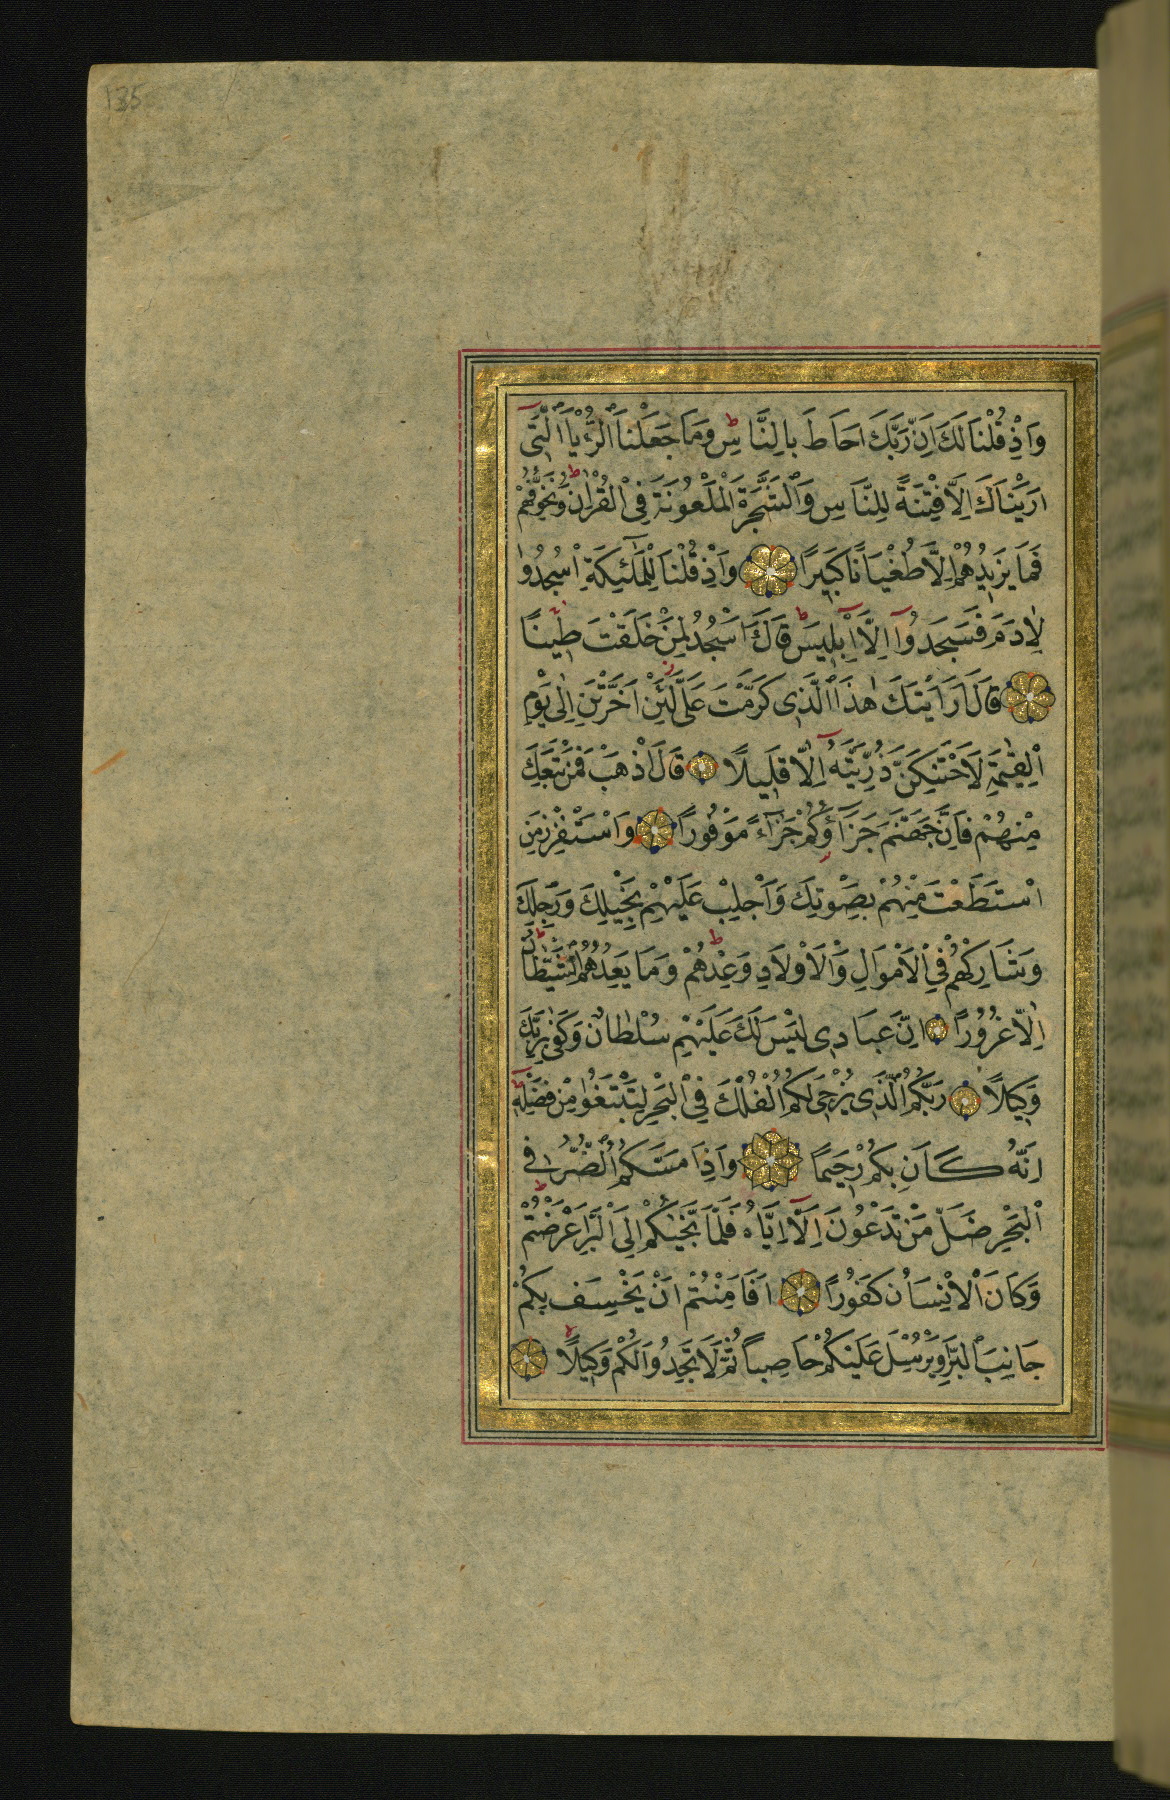 135
وَاِذْ قُلْنَا لَكَ اِنَّ رَبَّكَ اَحَاطَ بِالنَّاسِ ط وَمَا جَعَلْنَا الرُّءْيَا الَّتٖٓى
اَرَيْنَاكَ اِلَّا فِتْنَةً لِلنَّاسِ وَالشَّجَرَةَ الْمَلْعُونَةَ فِى الْقُرْاٰنِ ط وَنُخَوِّفُهُمْ
فَمَا يَزٖيدُهُمْ اِلَّا طُغْيَانًا كَبٖيرًا وَاِذْ قُلْنَا لِلْمَلٰٓئِكَةِ اسْجُدُوا
لِاٰدَمَ فَسَجَدُوٓا اِلَّٓا اِبْلٖيسَ ط قَالَ ءَاَسْجُدُ لِمَنْ خَلَقْتَ طٖينًا
قَالَ اَرَاَيْتَكَ هٰذَا الَّذٖى كَرَّمْتَ عَلَىَّ ز لَئِنْ اَخَّرْتَنِ اِلٰى يَوْمِ
الْقِيٰمَةِ لَاَحْتَنِكَنَّ ذُرِّيَّتَهُٓ اِلَّا قَلٖيلًا قَالَ اذْهَبْ فَمَنْ تَبِعَكَ
مِنْهُمْ فَاِنَّ جَهَنَّمَ جَزَٓاؤُكُمْ جَزَٓاءً مَوْفُورًا وَاسْتَفْزِزْ مَنِ
اسْتَطَعْتَ مِنْهُمْ بِصَوْتِكَ وَاَجْلِبْ عَلَيْهِمْ بِخَيْلِكَ وَرَجِلِكَ
وَشَارِكْهُمْ فِى الْاَمْوَالِ وَالْاَوْلَادِ وَعِدْهُمْ ط وَمَا يَعِدُهُمُ الشَّيْطَانُ
اِلَّا غُرُورًا اِنَّ عِبَادٖى لَيْسَ لَكَ عَلَيْهِمْ سُلْطَانٌ ط وَكَفٰى بِرَبِّكَ
وَكٖيلًا رَبُّكُمُ الَّذٖى يُزْجٖى لَكُمُ الْفُلْكَ فِى الْبَحْرِ لِتَبْتَغُوا مِنْ فَضْلِهٖ
اِنَّهُ كَانَ بِكُمْ رَحٖيمًا وَاِذَا مَسَّكُمُ الضُّرُّ فِى
الْبَحْرِ ضَلَّ مَنْ تَدْعُونَ اِلَّٓا اِيَّاهُ فَلَمَّا نَجّٰيكُمْ اِلَى الْبَرِّ اَعْرَضْتُمْ ط
وَكَانَ الْاِنْسَانُ كَفُورًا اَفَاَمِنْتُمْ اَنْ يَخْسِفَ بِكُمْ
جَانِبَ الْبَرِّ اَوْ يُرْسِلَ عَلَيْكُمْ حَاصِبًا ثُمَّ لَا تَجِدُوا لَكُمْ وَكٖيلًا